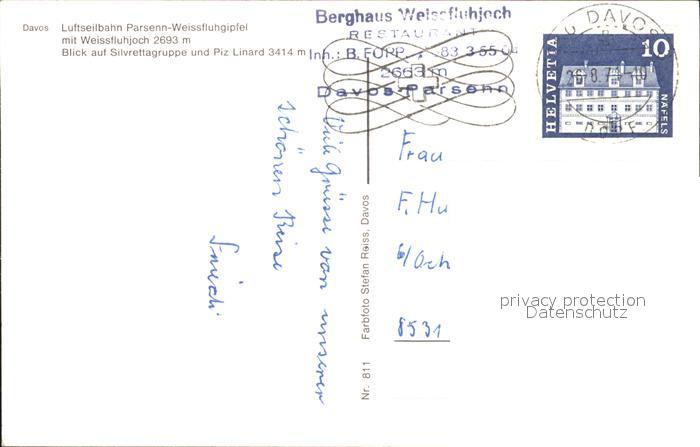 Davos Luftseilbahn Parsenn-Weissfluhgipfel
mit Weissfluhjoch 2693 m
Blick auf Silvrettagruppe und Piz Linard 3414 m
Berghaus Weissfluhjoch
RESTAURANT
Inh.: B. FOPP, 83 3 55 04
2663 m
Davos-Parsenn
DAVOS
26.8.7
DORF
HELVETIA
10
NÄFELS
Viele Grüsse von unserer
schönen Reise
Frau
F. Hu
8531
Nr. 811 Farbfoto Stefan Reiss, Davos
privacy protection
Datenschutz